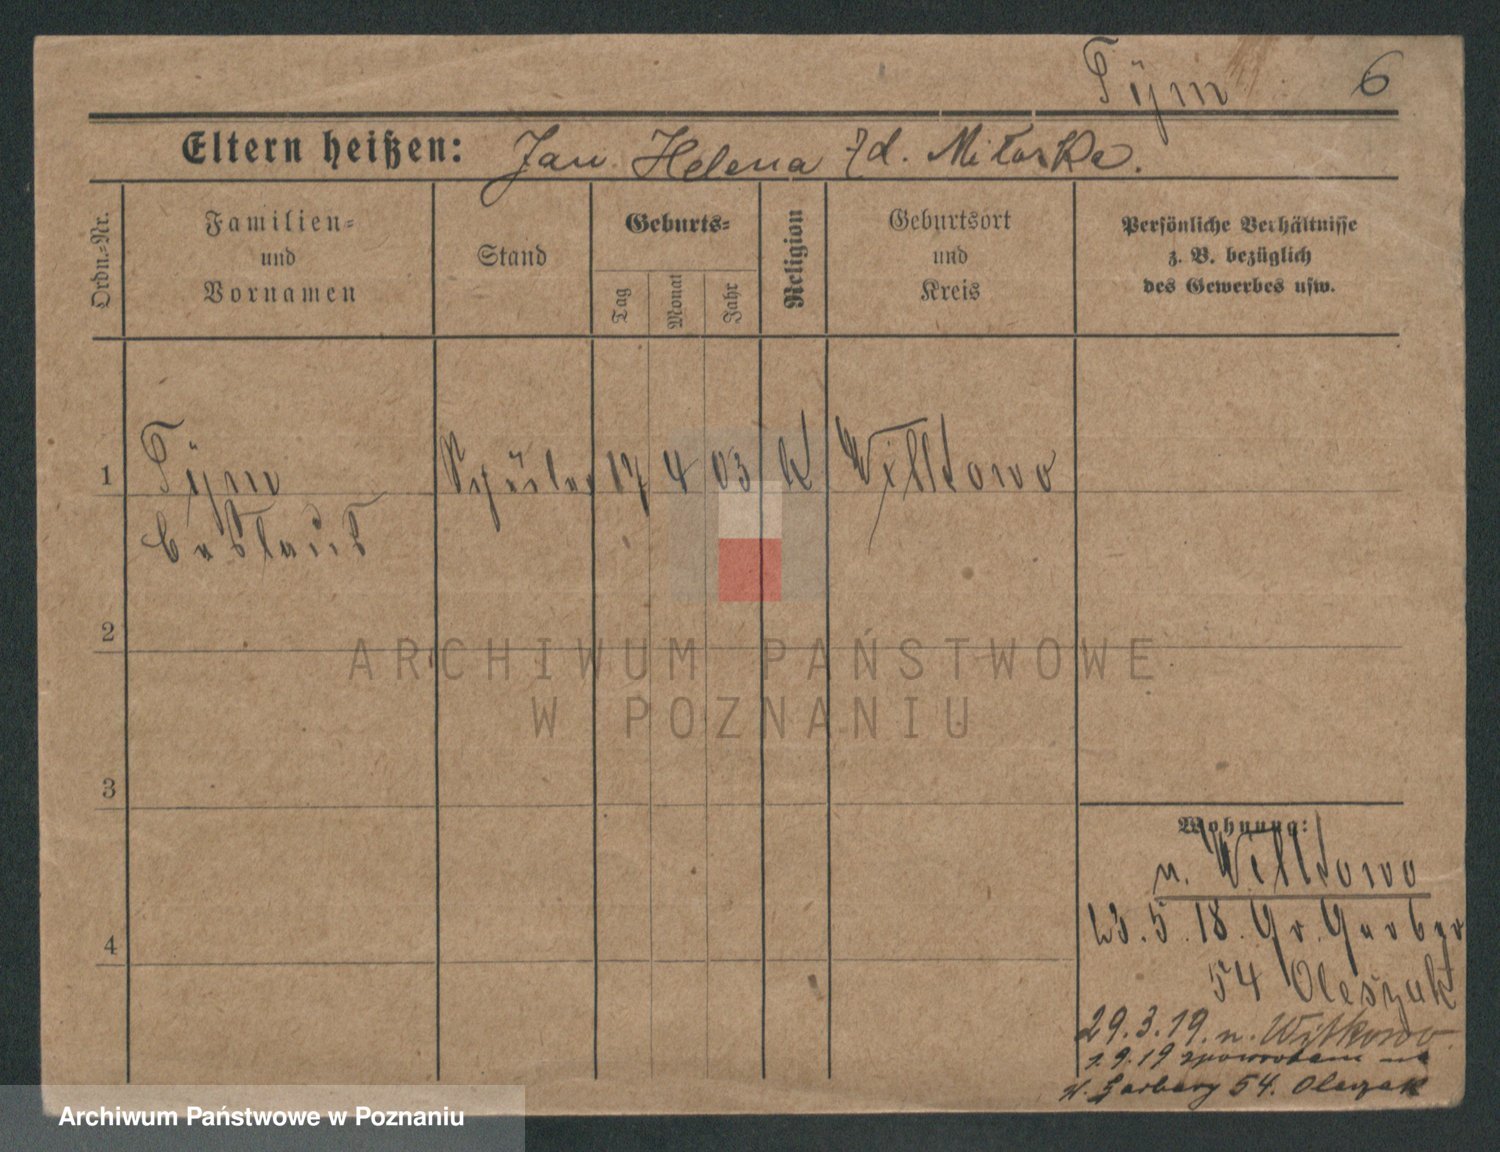 Tÿm 6
Eltern heißen: Jan Helena zd. Mitarska.
Ordn.=Nr.
Familien=
und
Vornamen
Stand
Geburts=
Tag
Monat
Jahr
Religion
Geburtsort
und
Kreis
Persönliche Verhältnisse
z. B. bezüglich
des Gewerbes usw.
1 Tÿm Schüler 17 4 03 K Wittkowo
2
3
4
Wohnung:
n. Wittkowo
23.5.18. Gr. Gerber
54 Oleszak
29.3.19. n. Witkowo.
1.9.19 zpowrotem na
W. Garbary 54. Oleszak
ARCHIWUM PAŃSTWOWE
W POZNANIU
Archiwum Państwowe w Poznaniu